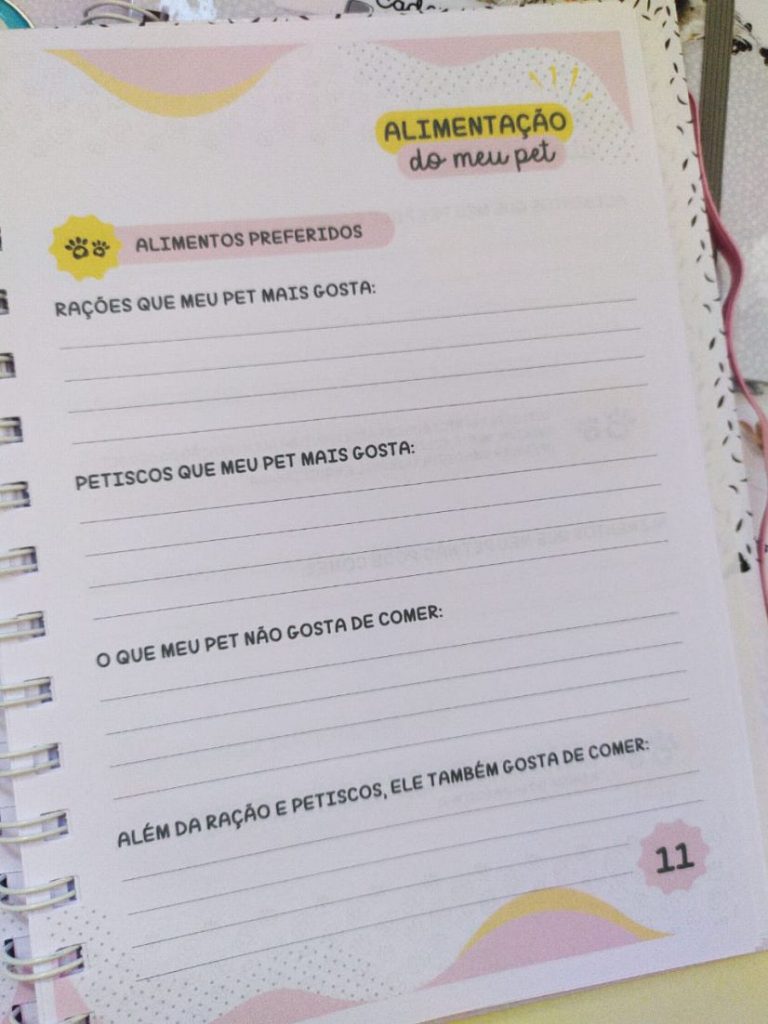 ALIMENTAÇÃO
do meu pet
ALIMENTOS PREFERIDOS
RAÇÕES QUE MEU PET MAIS GOSTA:
PETISCOS QUE MEU PET MAIS GOSTA:
O QUE MEU PET NÃO GOSTA DE COMER:
ALÉM DA RAÇÃO E PETISCOS, ELE TAMBÉM GOSTA DE COMER:
11